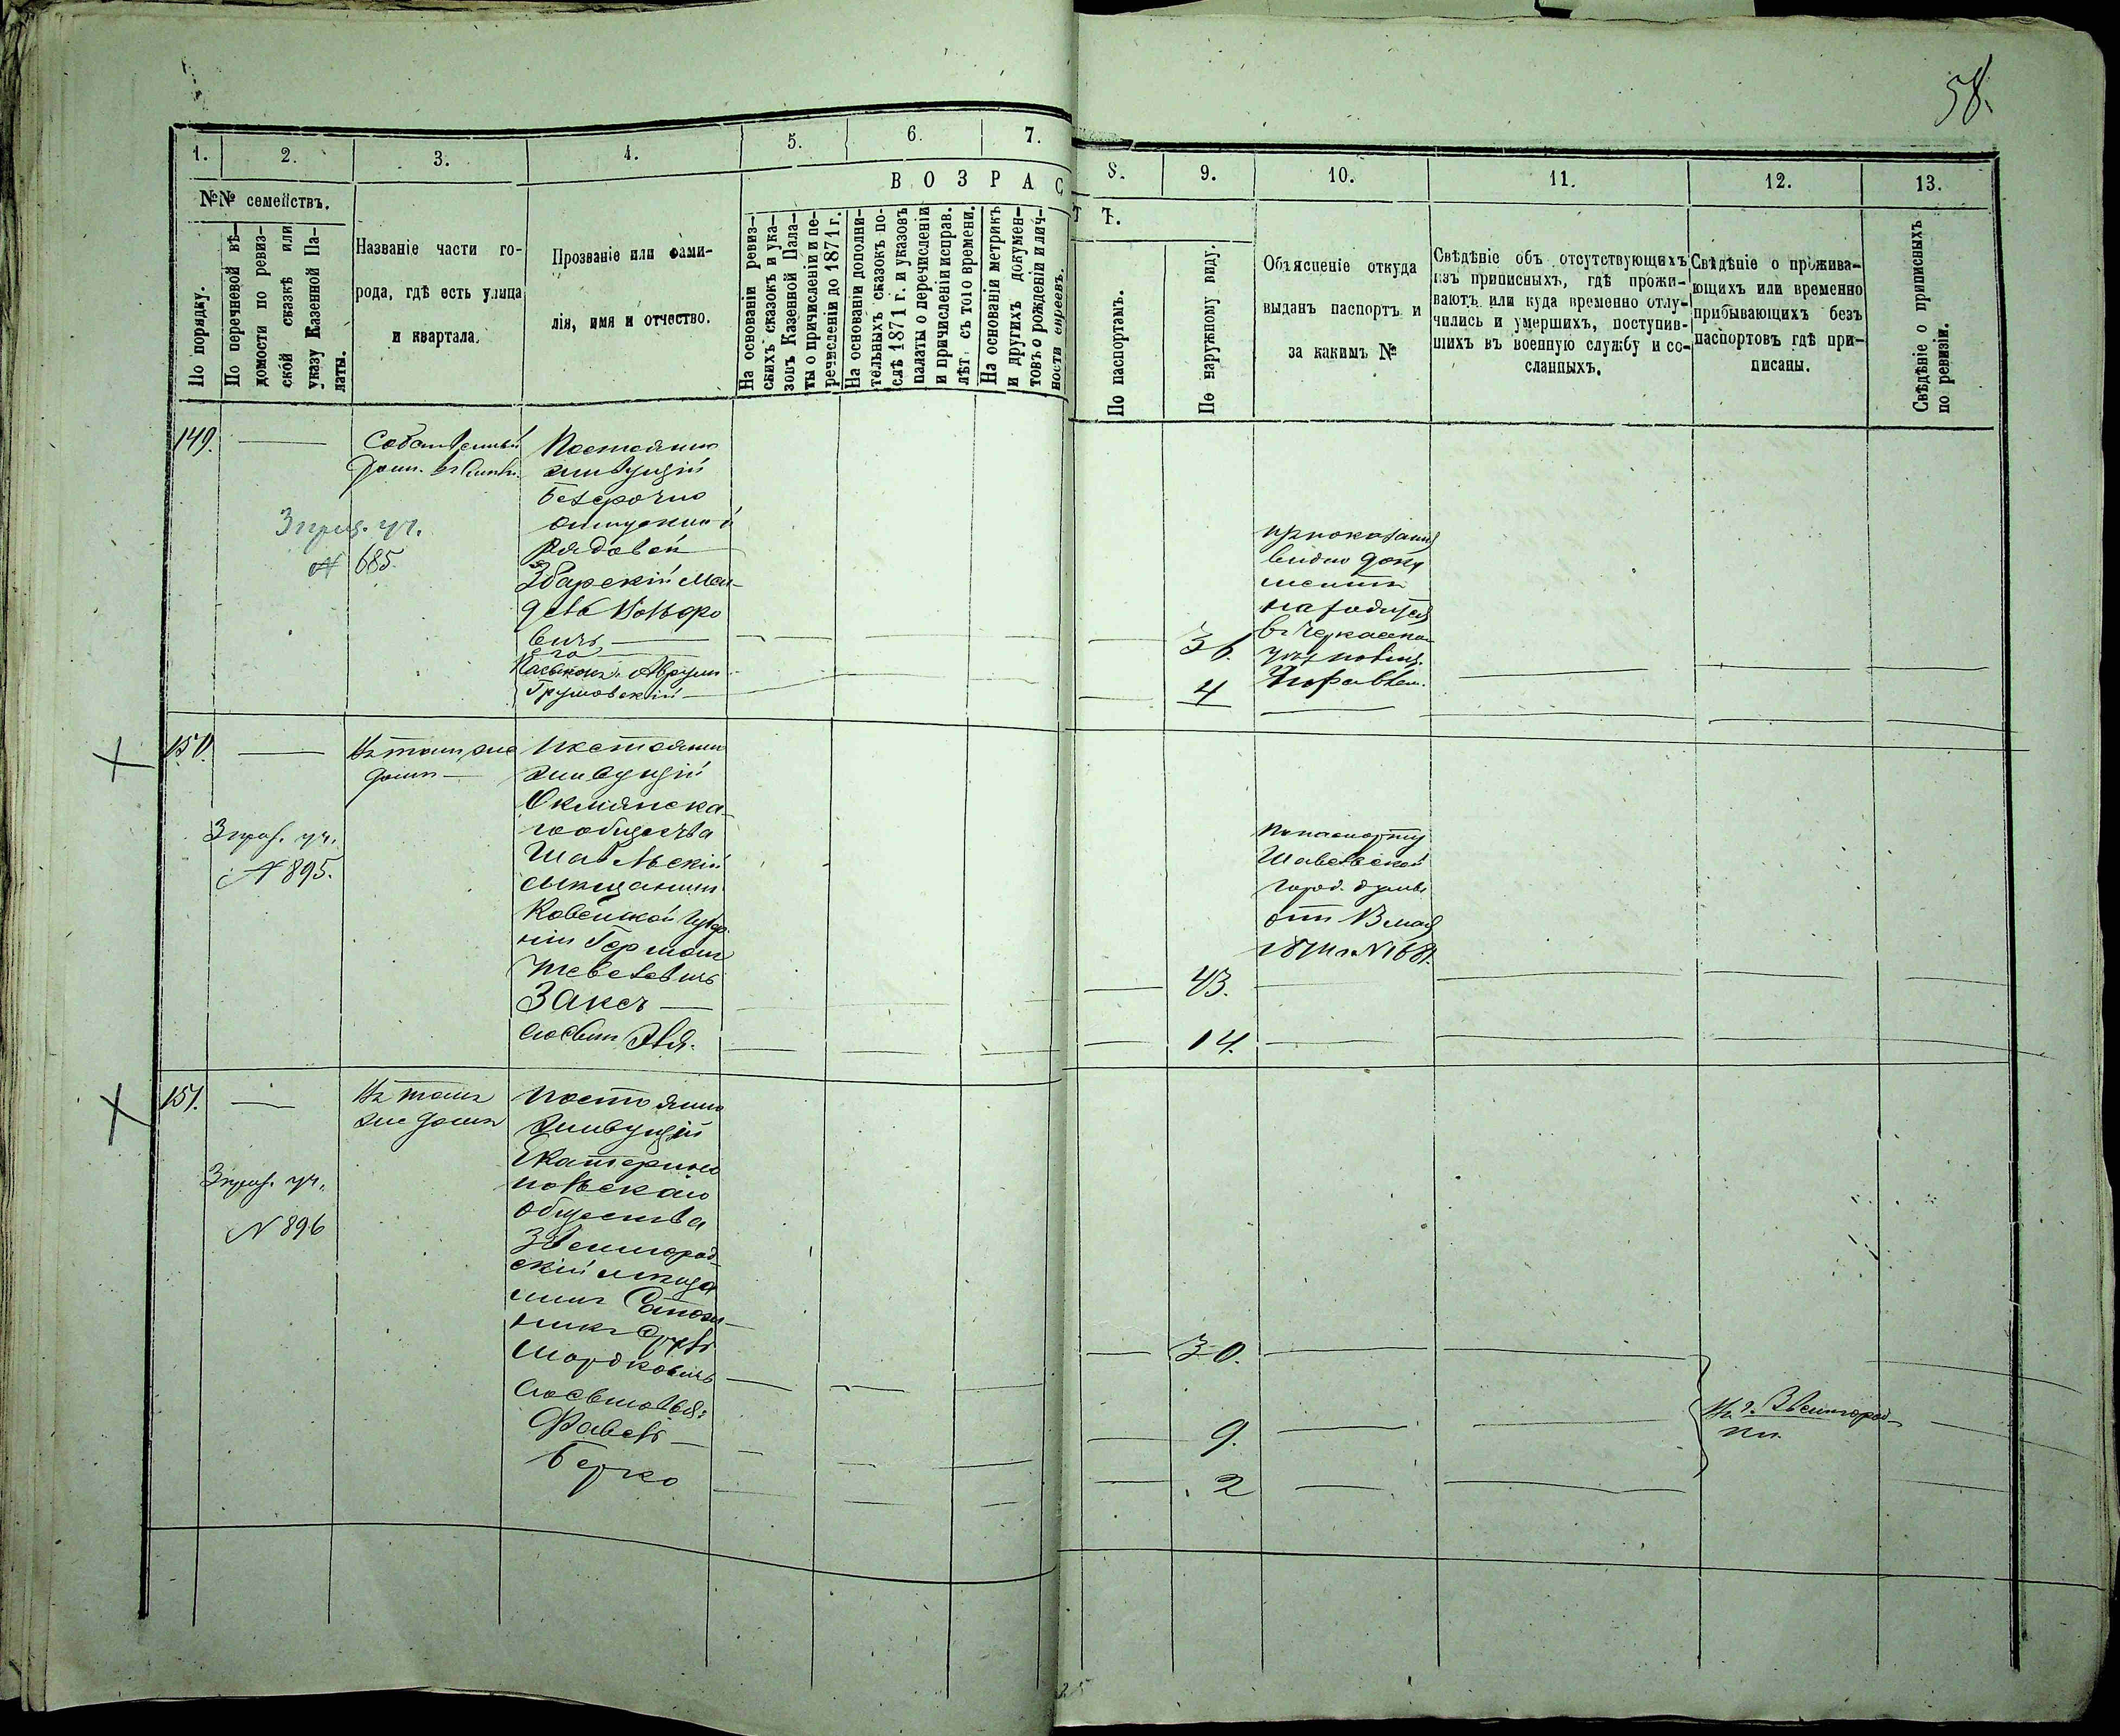 58.
1. 2. 3. 4. 5. 6. 7.
8. 9. 10. 11. 12. 13.
№№ семействъ.
По порядку.
По перечневой вѣ-
домости по ревиз-
ской сказкѣ или
указу Казенной Па-
латы.
Названіе части го-
рода, гдѣ есть улица
и квартала.
Прозваніе или фами-
лія, имя и отчество.
ВОЗРАСТЪ.
На основаніи ревиз-
скихъ сказокъ и ука-
зовъ Казенной Пала-
ты о причисленіи и пе-
речисленіи до 1871 г.
На основаніи дополни-
тельныхъ сказокъ по-
слѣ 1871 г. и указовъ
палаты о перечисленіи
и причисленіи исправ.
лѣт. съ того времени.
На основаніи метрикъ
и другихъ докумен-
товъ о рожденіи и лич-
ности евреевъ.
По паспортамъ.
По наружному виду.
Объясненіе откуда
выданъ паспортъ и
за какимъ №
Свѣдѣніе объ отсутствующихъ
изъ приписныхъ, гдѣ прожи-
ваютъ или куда временно отлу-
чились и умершихъ, поступив-
шихъ въ военную службу и со-
сланныхъ.
Свѣдѣніе о прожива-
ющихъ или временно
прибывающихъ безъ
паспортовъ гдѣ при-
писаны.
Свѣдѣніе о приписныхъ
по ревизіи.
149.
Собственный
домъ
3 приз. уч.
№ 685.
Постоянно
живущій
безсрочно
отпускной
рядовой
Збарскій Мен-
дель
вичъ
его
Пасынокъ Аврумъ
Грушовскій
36.
4
показанія
видно доку
ментъ
находится
въ Черкаскомъ
Управлен.
150.
Въ томъ же
домѣ
3 приз. уч.
№ 895.
Постоянно
живущій
Окмянска-
го общества
Шавельскій
мѣщанинъ
Ковенской Губер
ніи Германъ
Заксъ
сынъ
43.
14.
По паспорту
Шавельской
город. думы
отъ
151.
Въ томъ
же домѣ
3 приз. уч.
№ 896
Постоянно
живущій
Екатерино
польскаго
общества
Звенигород-
скій мѣща
нинъ Сапож-
никъ
Мордковичъ
сыновья:
Файвель
Берко
30.
9.
2
Въ г. Звенигород-